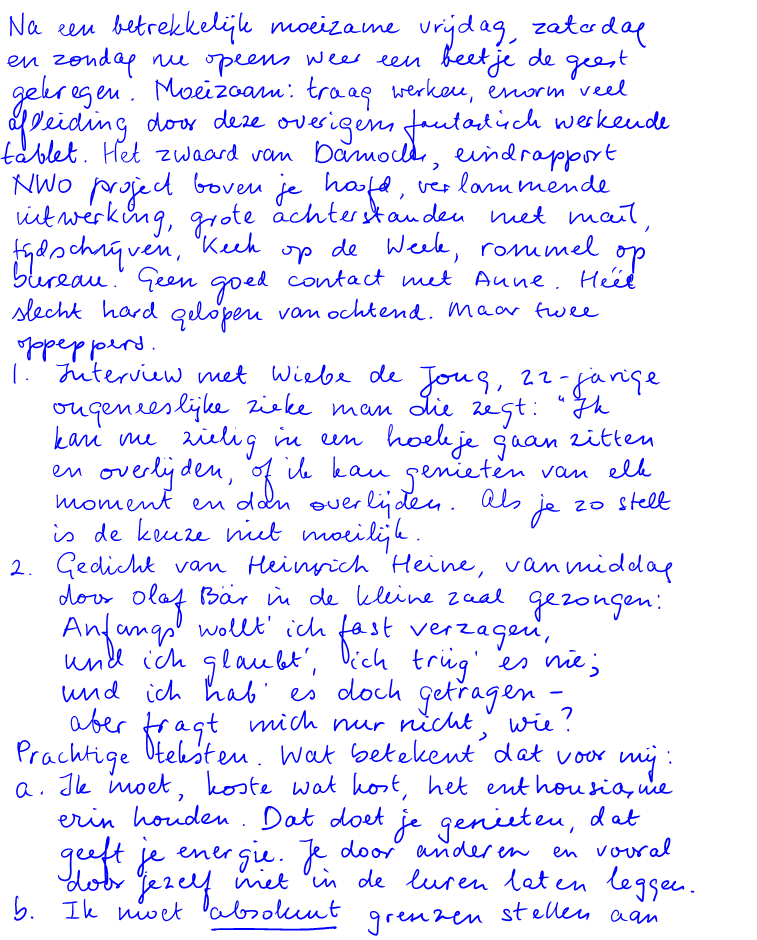 Na een betrekkelijk moeizame vrijdag, zaterdag
en zondag nu opeens weer een beetje de geest
gekregen. Moeizaam: traag werken, enorm veel
afleiding door deze overigens fantastisch werkende
tablet. Het zwaard van Damocles, eindrapport
NWO project boven je hoofd, verlammende
uitwerking, grote achterstanden met mail,
tijdschrijven, Keek op de Week, rommel op
bureau. Geen goed contact met Anne. Héél
slecht hard gelopen vanochtend. Maar twee
oppeppers.
1. Interview met Wiebe de Jong, 22-jarige
ongeneeslijke zieke man die zegt: "Ik
kan me zielig in een hoekje gaan zitten
en overlijden, of ik kan genieten van elk
moment en dan overlijden. Als je zo stelt
is de keuze niet moeilijk.
2. Gedicht van Heinrich Heine, vanmiddag
door Olaf Bär in de kleine zaal gezongen:
Anfangs wollt' ich fast verzagen,
und ich glaubt', ich trüg' es nie;
und ich hab' es doch getragen –
aber fragt mich nur nicht, wie?
Prachtige teksten. Wat betekent dat voor mij:
a. Ik moet, koste wat kost, het enthousiasme
erin houden. Dat doet je genieten, dat
geeft je energie. Je door anderen en vooral
door jezelf niet in de luren laten leggen.
b. Ik moet absoluut grenzen stellen aan